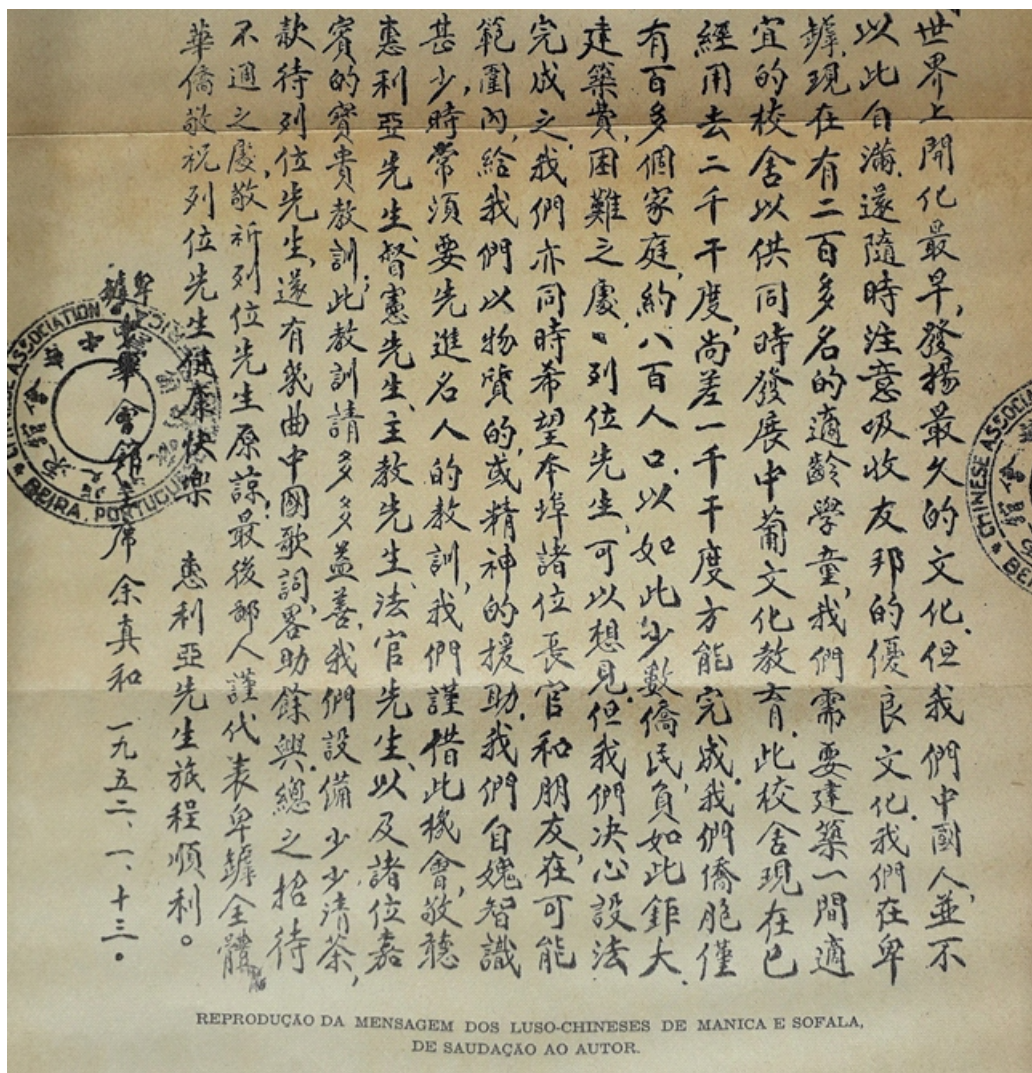 世界上開化最早,發揚最久的文化.但我們中國人,並不
以此自滿.遂隨時注意吸收友邦的優良文化.我們在卑
罅,現在有二百多名的適齡學童,我們需要建築一間適
宜的校舍以供同時發展中葡文化教育.此校舍現在已
經用去二千干度,尚差一千干度方能完成.我們僑胞僅
有百多個家庭,約八百人口.以如此少數僑民,負如此鉅大
建築費,困難之處、列位先生,可以想見.但我們决心設法
完成之.我們亦同時希望本埠諸位長官和朋友,在可能
範圍內,給我們以物質的,或精神的援助.我們自媿智識
甚少,時常須要先進名人的教訓,我們謹借此機會,敬聽
惠利亞先生、督憲先生、主教先生、法官先生、以及諸位嘉
賓的寶貴教訓;此教訓請多多益善.我們設備少少清茶,
款待列位先生,遂有幾曲中國歌詞,畧助餘興.總之招待
不週之處,敬祈列位先生原諒.最後鄙人謹代表卑罅全體
華僑敬祝列位先生健康快樂 惠利亞先生旅程順利。
卑罅中華會館主席 余真和 一九五二、一、十三。
CHINESE ASSOCIATION
BEIRA, PORTUGUE
CHINESE ASSOC
BE
REPRODUÇÃO DA MENSAGEM DOS LUSO-CHINESES DE MANICA E SOFALA,
DE SAUDAÇÃO AO AUTOR.